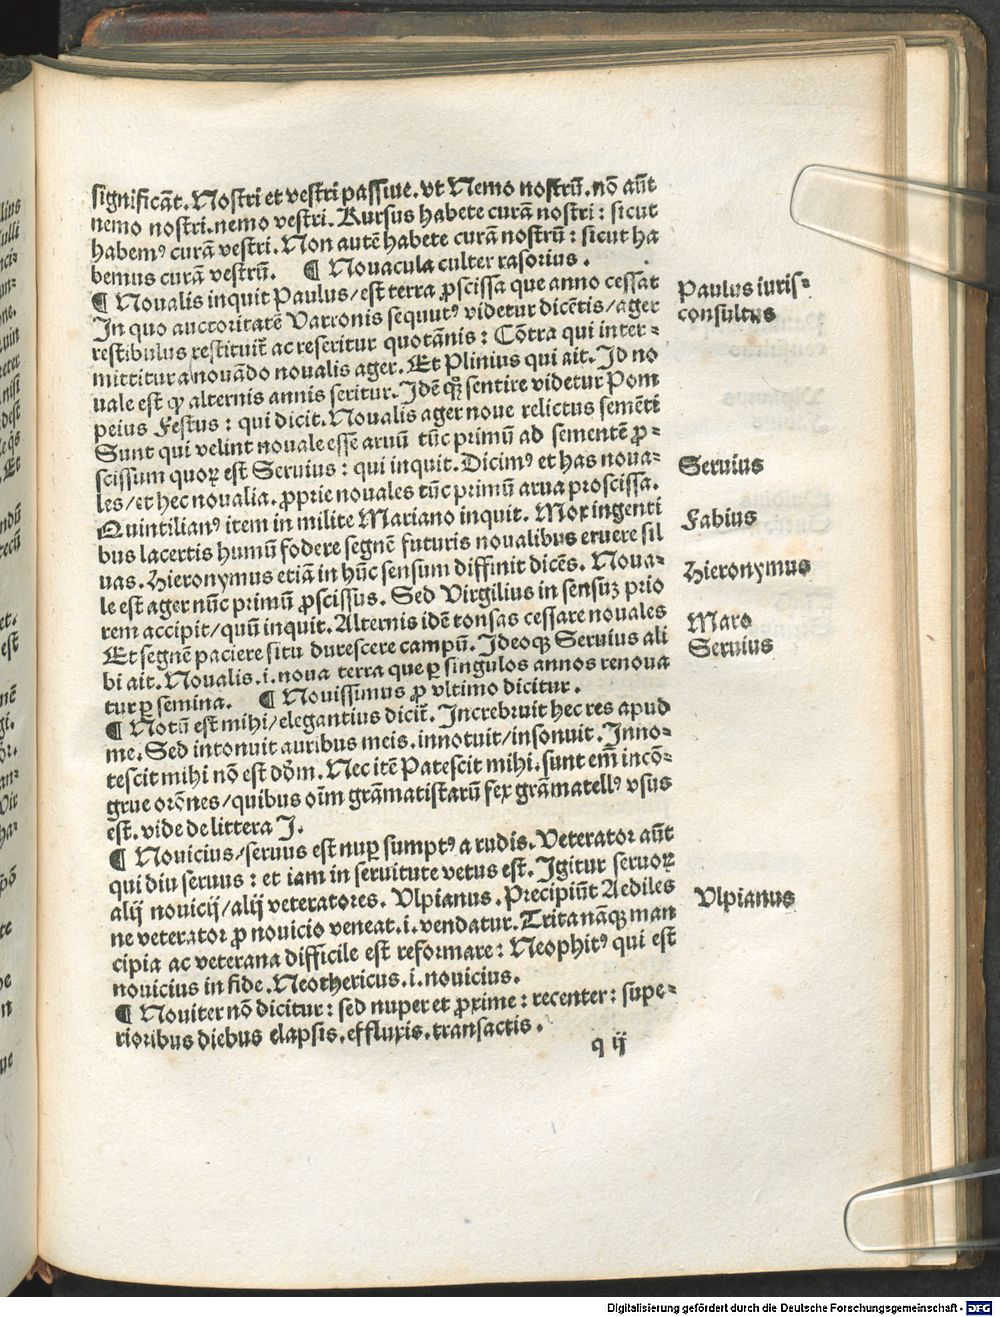 significãt. Nostri et vestri passiue. vt Nemo nostrũ. nõ aũt
nemo nostri. nemo vestri. Rursus habete curã nostri: sicut
habemꝰ curã vestri. Non autẽ habete curã nostrũ: sicut ha
bemus curã vestrũ. ¶ Nouacula culter rasorius.
¶ Noualis inquit Paulus/est terra ꝓscissa que anno cessat
In quo auctoritatẽ Varronis sequutꝰ videtur dicẽtis/ager
restibulus restituit̃ ac reseritur quotãnis: Cõtra qui inter-
mittitur a nouãdo noualis ager. Et Plinius qui ait. Id no
uale est qꝙ alternis annis seritur. Idẽ qꝫ sentire videtur Pom
peius Festus: qui dicit. Noualis ager noue relictus semẽti
Sunt qui velint nouale esse aruũ tũc primũ ad sementẽ ꝓ-
scissum quoꝝ est Seruius: qui inquit. Dicimꝰ et has noua-
les/et hec noualia. ꝓprie nouales tũc primũ arua proscissa.
Quintilianꝰ item in milite Mariano inquit. Mox ingenti
bus lacertis humũ fodere segnẽ futuris noualibus eruere sil
uas. Hieronymus etiã in hũc sensum diffinit dicẽs. Noua-
le est ager nũc primũ ꝓscissus. Sed Virgilius in sensuꝫ prio
rem accipit/quũ inquit. Alternis idẽ tonsas cessare nouales
Et segnẽ paciere situ durescere campũ. Ideoqꝫ Seruius ali
bi ait. Noualis .i. noua terra que ꝑ singulos annos renoua
tur ꝑ semina. ¶ Nouissimus ꝓ vltimo dicitur.
¶ Notũ est mihi/elegantius dicit̃. Increbruit hec res apud
me. Sed intonuit auribus meis. innotuit/insonuit. Inno-
tescit mihi nõ est dõm. Nec itẽ Patescit mihi. sunt em̃ incõ-
grue orõnes/quibus oĩm grãmatistarũ fex grãmatellꝰ vsus
est. vide de littera I.
¶ Nouicius/seruus est nuꝑ sumptꝰ a rudis. Veterator aũt
qui diu seruus: et iam in seruitute vetus est. Igitur seruoꝝ
alij nouicij/alij veteratores. Vlpianus. Precipiũt Aediles
ne veterator ꝓ nouicio veneat .i. vendatur. Trita nãqꝫ man
cipia ac veterana difficile est reformare: Neophitꝰ qui est
nouicius in fide. Neothericus .i. nouicius.
¶ Nouiter nõ dicitur: sed nuper et ꝓxime: recenter: supe-
rioribus diebus elapsis. effluxis. transactis.
q ij
Paulus iuris-
consultus
Seruius
Fabius
Hieronymus
Maro
Seruius
Vlpianus
Digitalisierung gefördert durch die Deutsche Forschungsgemeinschaft - DFG